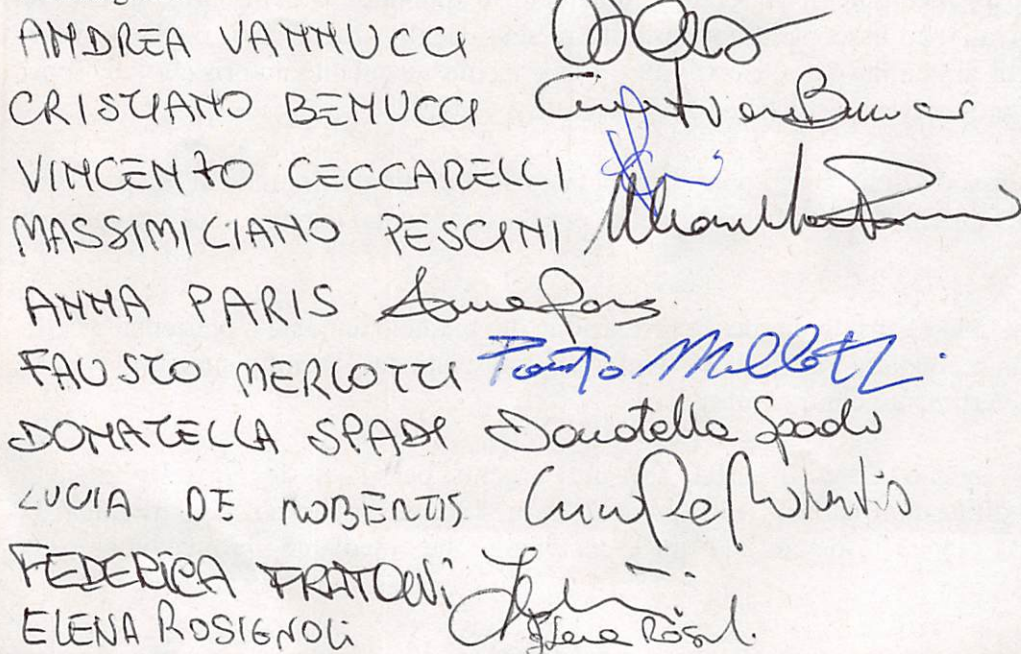 ANDREA VANNUCCI
CRISTIANO BENUCCI
VINCENZO CECCARELLI
MASSIMILIANO PESCINI
ANNA PARIS Anna Paris
FAUSTO MERLOTTI Fausto Merlotti
DONATELLA SPADI Donatella Spadi
LUCIA DE ROBERTIS Lucia De Robertis
FEDERICA FRATONI
ELENA ROSIGNOLI